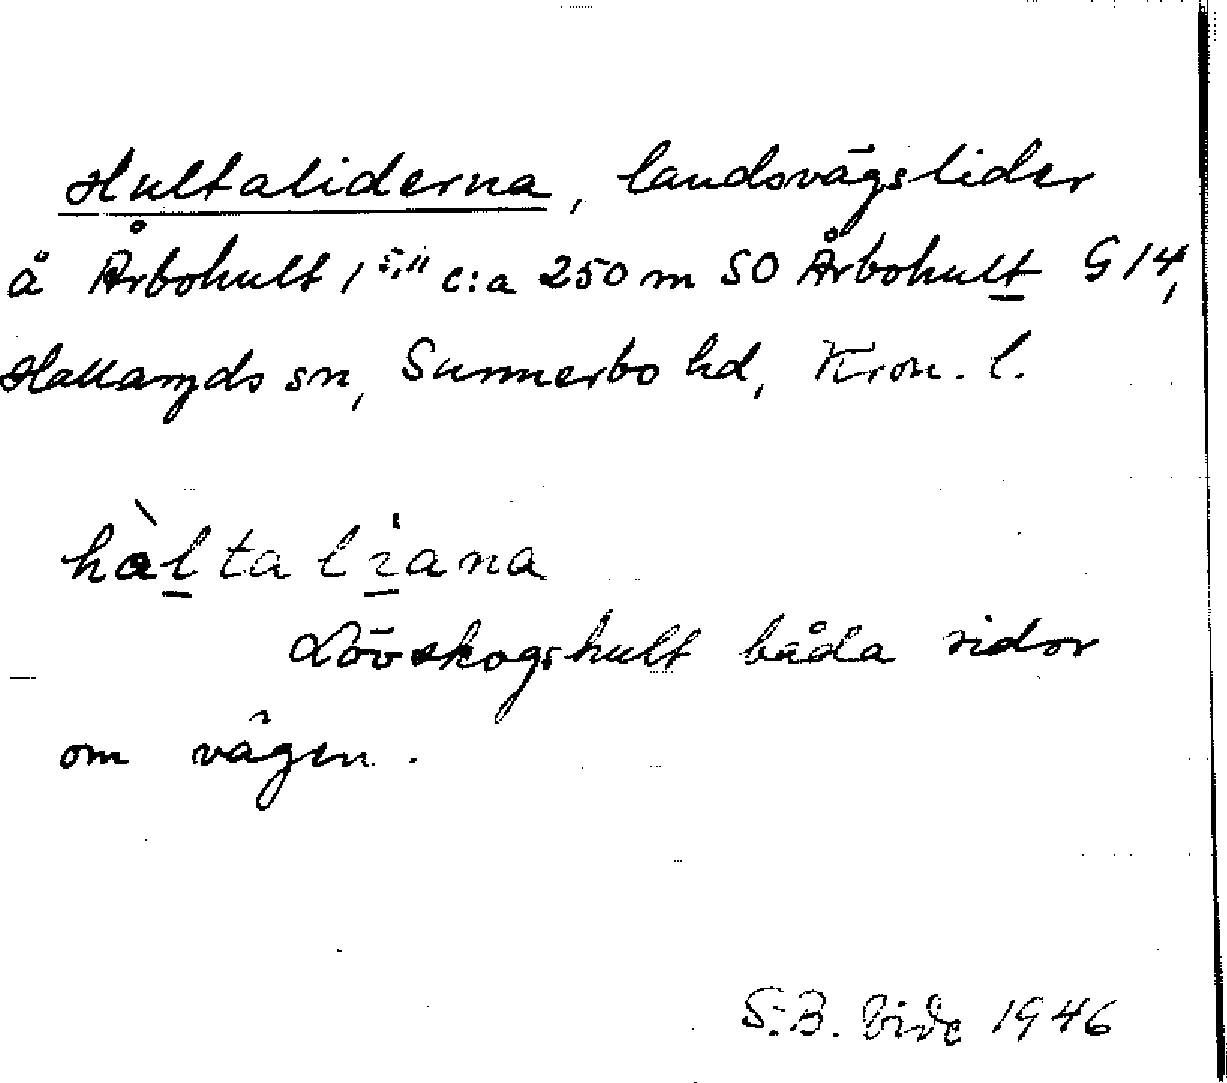 Hultaliderna, landsvägslider
å Årbohult 1 5,11 c:a 250 m SO Årbohult G 14,
Hallaryds sn, Sunnerbo hd, Kron. l.
hàltaliana
Lövskogshult båda sidor
om vägen.
S.B. 1946